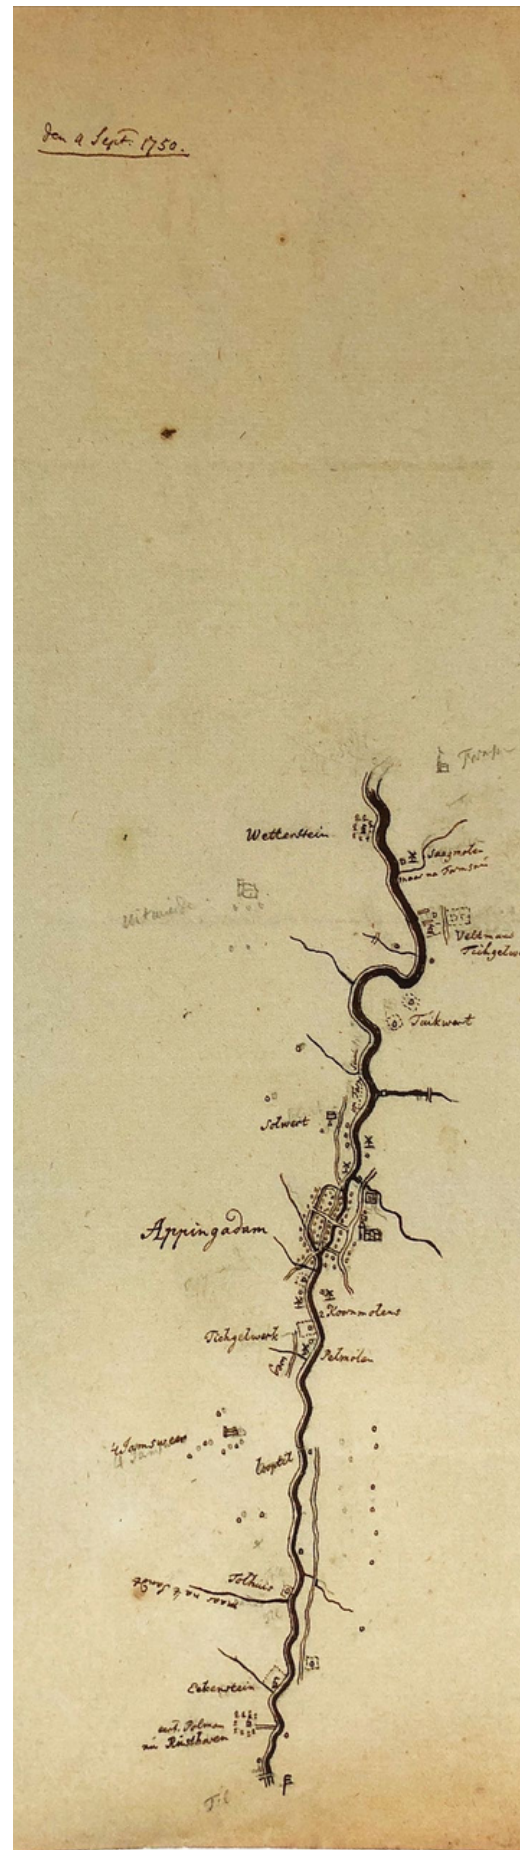 den 9 Sept. 1750.
Wetterstein
Saagmolen
maar na Farmsum
Uitwierde
Tichgelwerk
Tuikwert
Solwert
Appingadam
2 Kornmolens
Tichgelwerk
Pelmolen
't Jamsweer
looptil
Tolhuis
maar na 't Sandt
Ekenstein
Polman
nu Rusthoven
Til